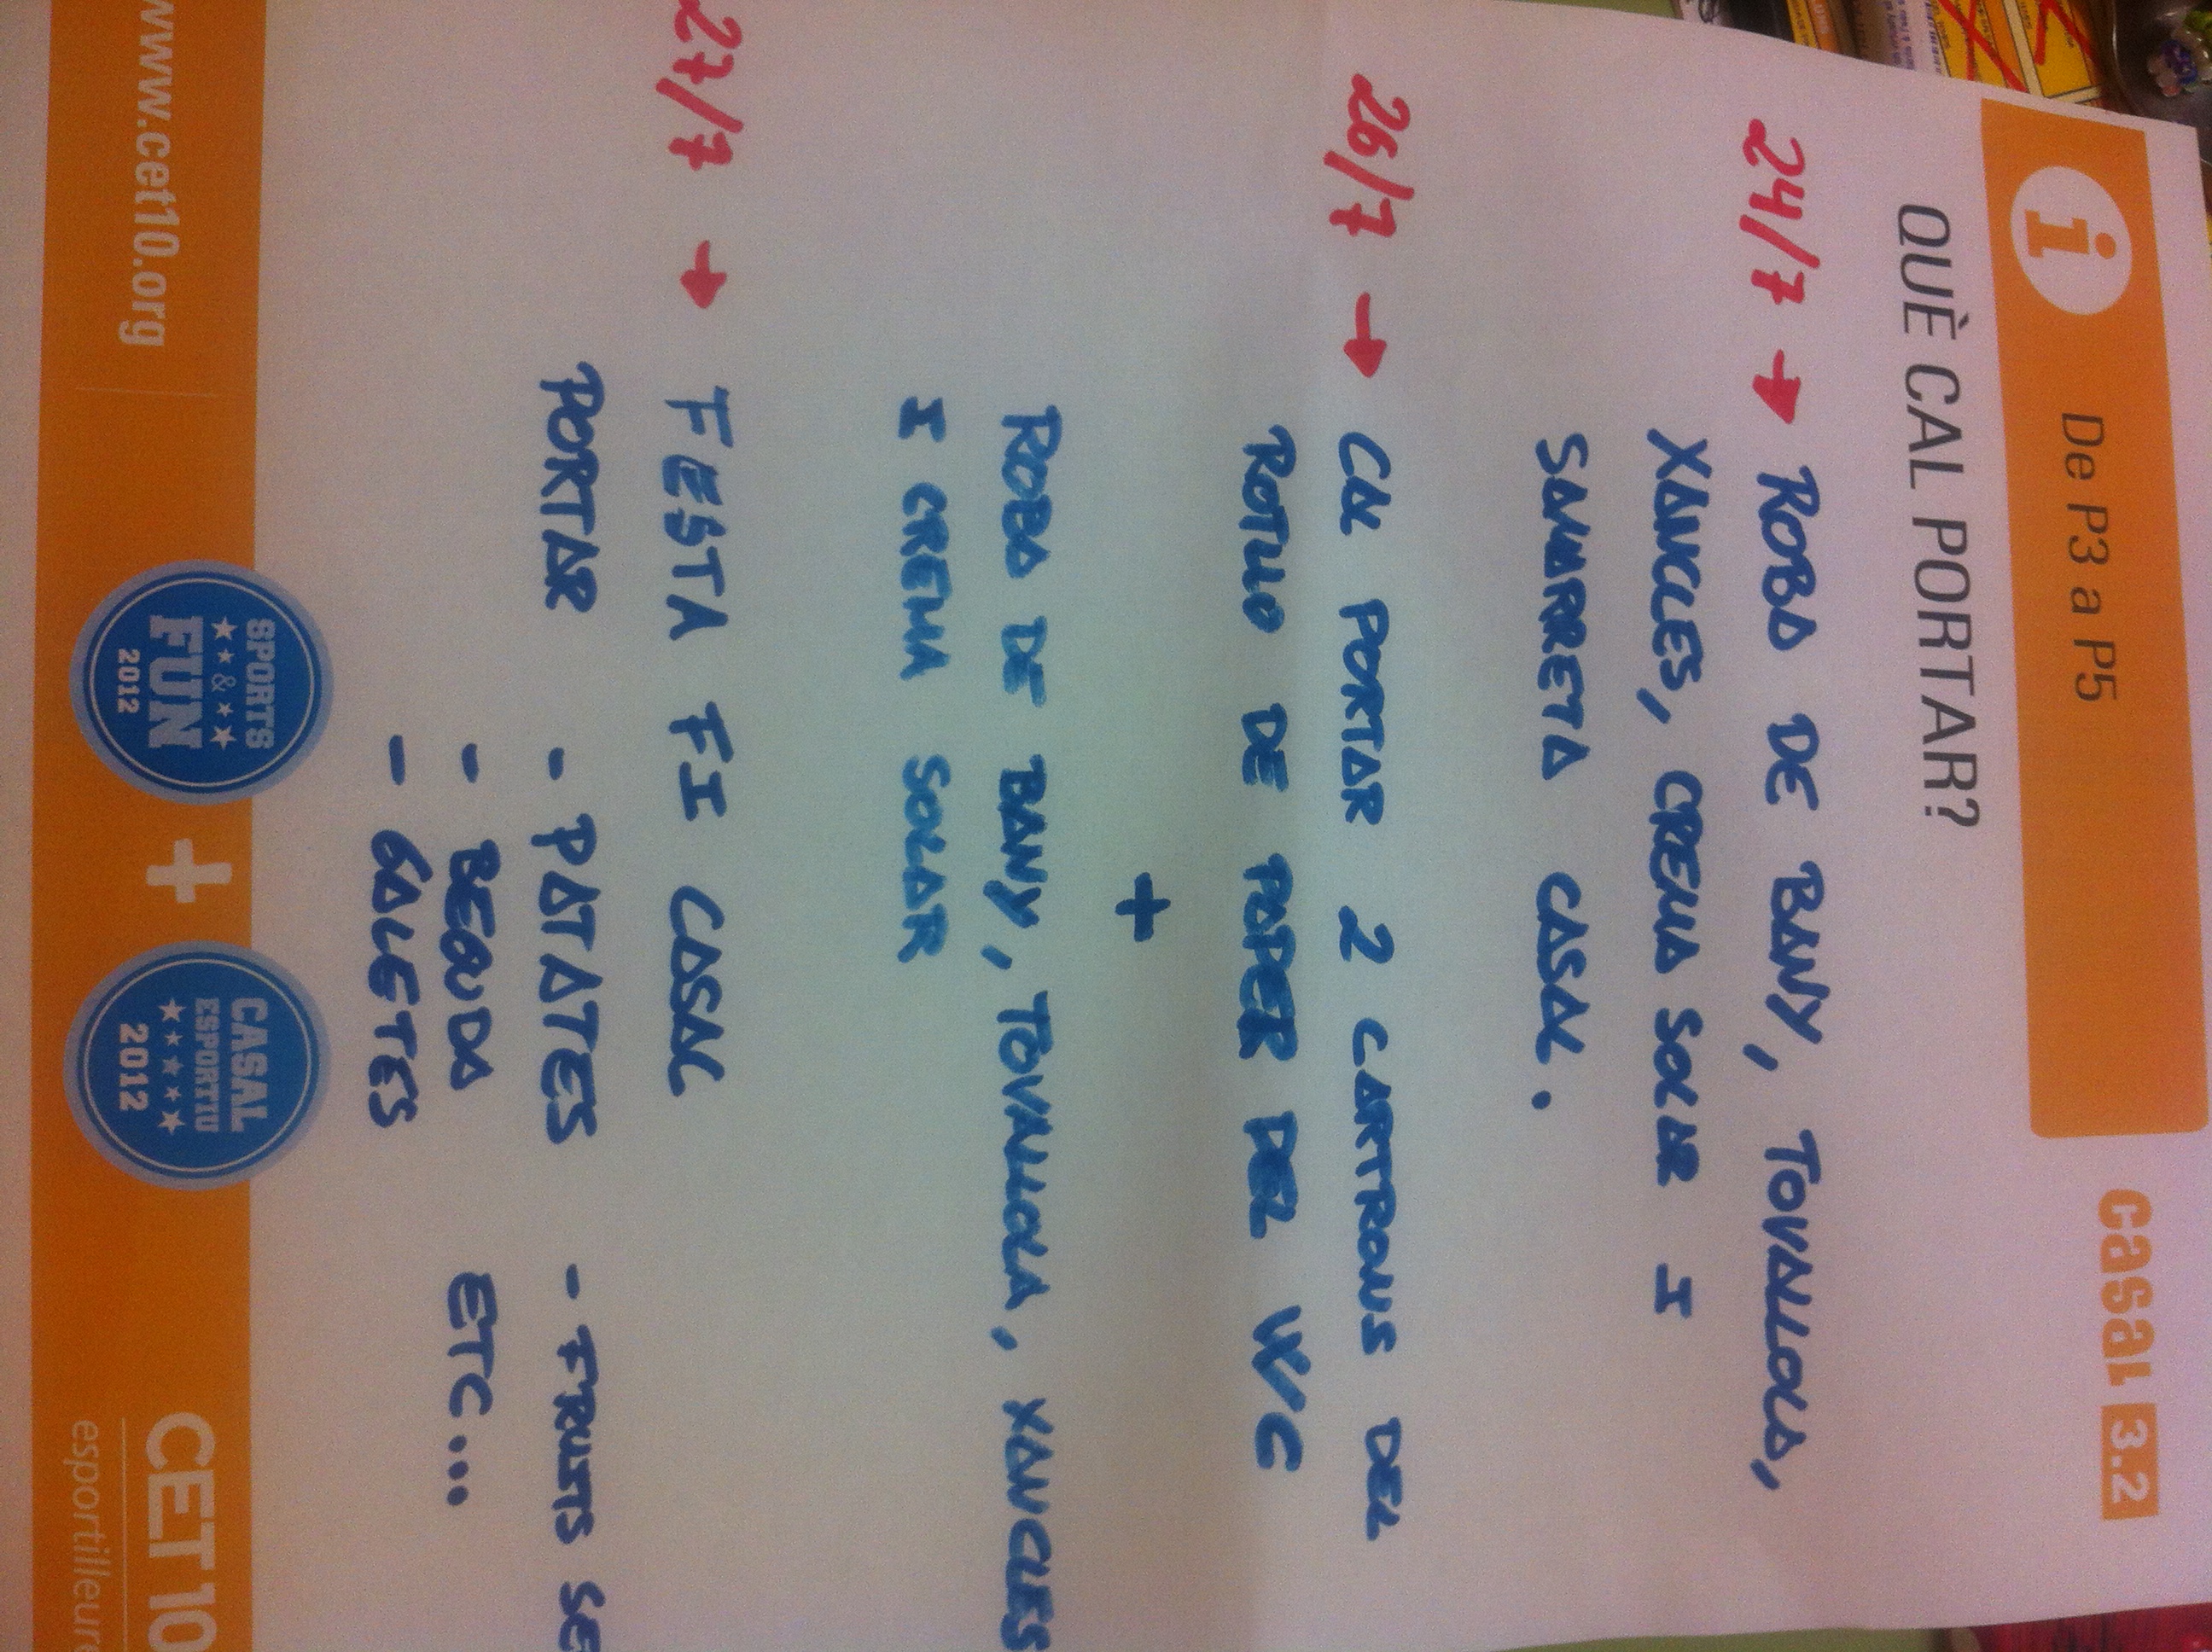 i De P3 a P5
casal 3.2
QUÈ CAL PORTAR?
24/7 → ROBA DE BANY, TOVALLOLA,
XANCLES, CREMA SOLAR I
SAMARRETA CASAL.
26/7 → CAL PORTAR 2 CARTRONS DEL
ROTLLO DE PAPER DEL W/C
+
ROBA DE BANY, TOVALLOLA, XANCLES
I CREMA SOLAR
27/7 → FESTA FI CASAL
PORTAR - PATATES - FRUITS SE
- BEGUDA ETC...
- GALETES
www.cet10.org
SPORTS
&
FUN
2012
+
CASAL
ESPORTIU
2012
CET10
esportilleure